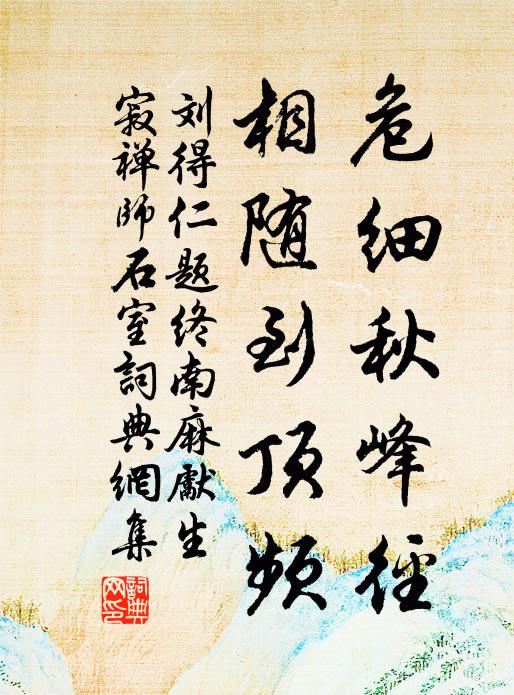 危细秋峰径
相随到顶频
刘得仁题终南麻献生
寂禅师石室詞典網集
詞典
网印